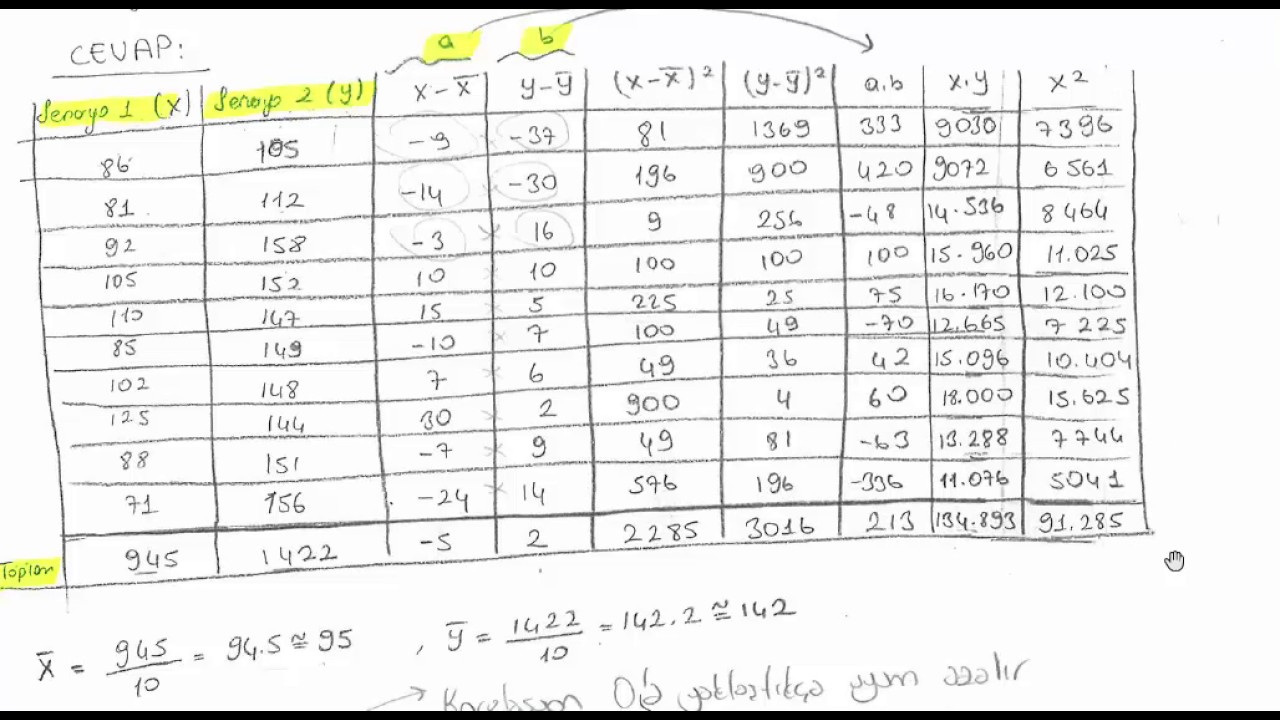 CEVAP:
a b
Senaryo 1 (x) Senaryo 2 (y) x-x̄ y-ȳ (x-x̄)² (y-ȳ)² a.b x.y x²
86 105 -9 -37 81 1369 333 9030 7396
81 112 -14 -30 196 900 420 9072 6561
92 158 -3 16 9 256 -48 14.536 8464
105 152 10 10 100 100 100 15.960 11.025
110 147 15 5 225 25 75 16.170 12.100
85 149 -10 7 100 49 -70 12.665 7225
102 148 7 6 49 36 42 15.096 10.404
125 144 30 2 900 4 60 18.000 15.625
88 151 -7 9 49 81 -63 13.288 7744
71 156 -24 14 576 196 -336 11.076 5041
Toplam 945 1422 -5 2 2285 3016 213 134.893 91.285
x̄ = 945/10 = 94.5 ≅ 95 , ȳ = 1422/10 = 142.2 ≅ 142
→ Korelasyon 0'a yaklaştıkça uyum azalır